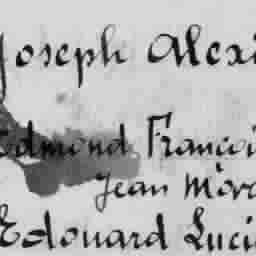 Joseph Alexi
Edmond Françoi
Jean Mora
Edouard Luci